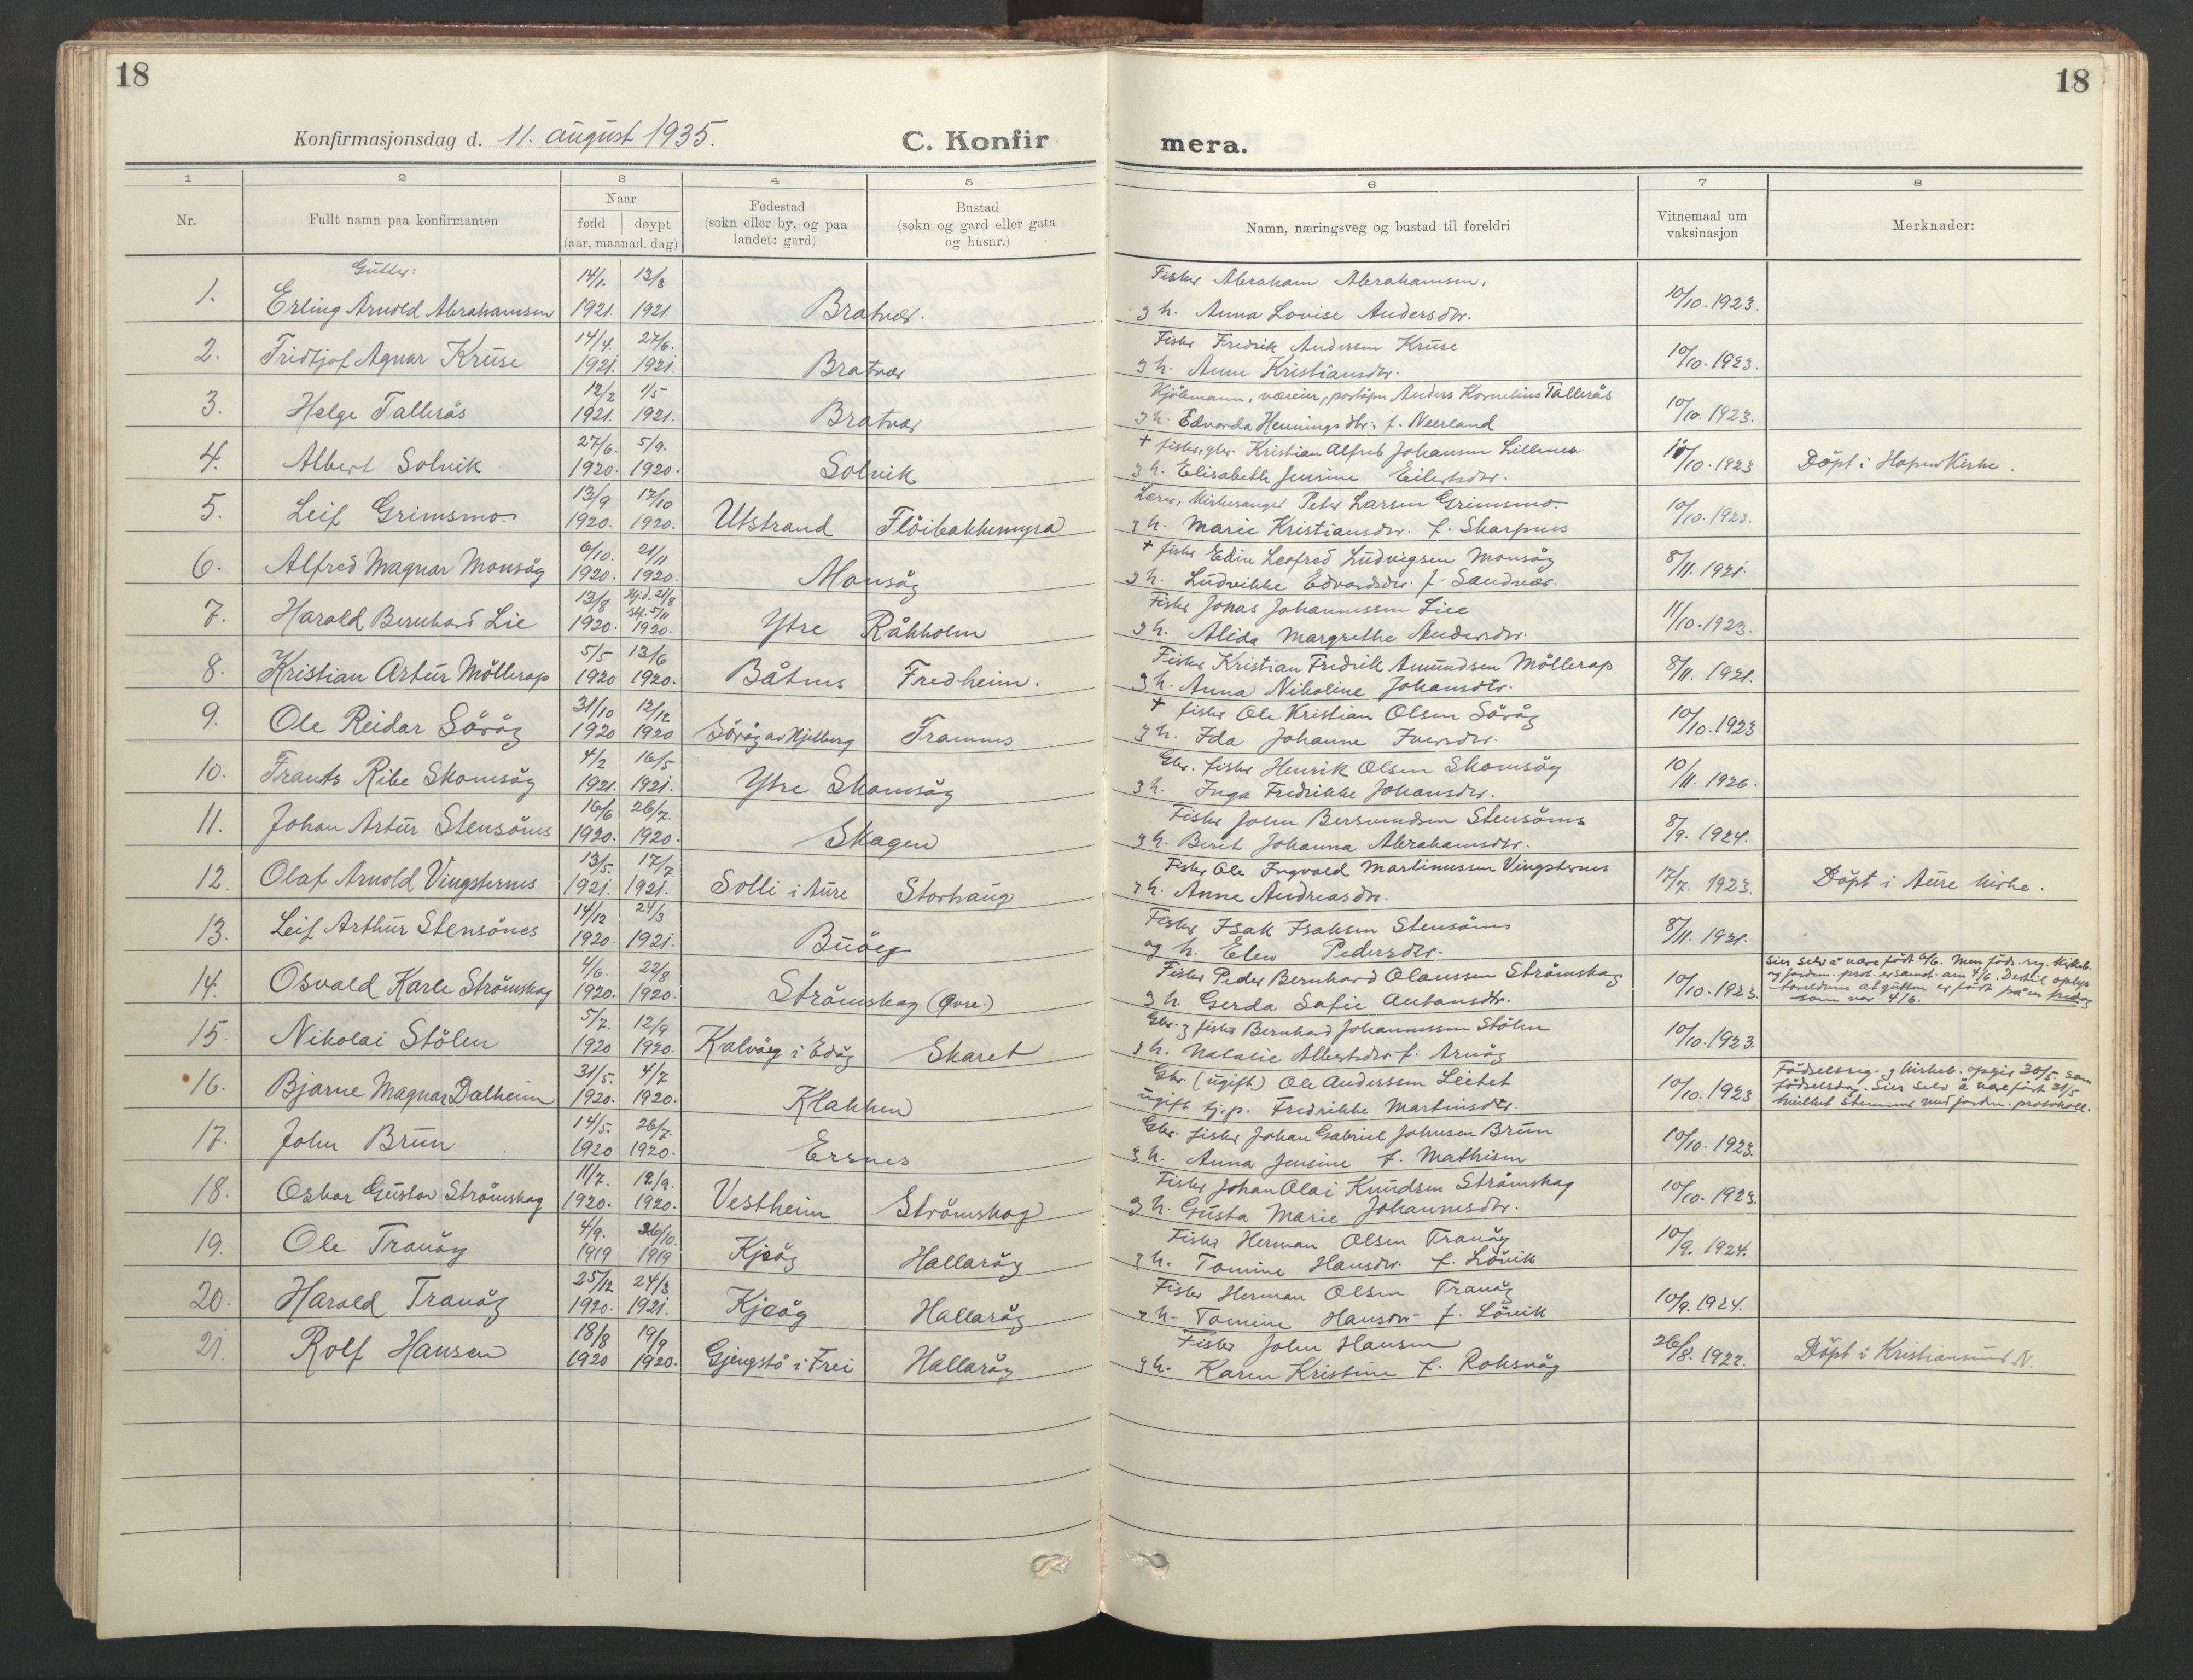 18
18
Konfirmasjonsdag d. 11. august 1935.
C. Konfir
mera.
1 2 3 4 5 6 7 8
Nr.
Fullt namn paa konfirmanten
Naar
fødd døypt
(aar, maanad, dag)
Fødestad
(sokn eller by, og paa
landet: gard)
Bustad
(sokn og gard eller gata
og husnr.)
Namn, næringsveg og bustad til foreldri
Vitnemaal um
vaksinasjon
Merknader:
Gutter:
14/1. 13/3 Fisker Abraham Abrahamsen.
1. Erling Arnold Abrahamsen 1921. 1921 Bratvær. g h. Anna Lovise Andersdtr. 10/10. 1923.
14/4. 27/6. Fisker Fredrik Andersen Kruse
2. Fridtjof Agnar Kruse 1921. 1921. Bratvær g h. Anne Kristiansdtr. 10/10. 1923.
12/2 1/5 Kjøbmann, væreier, postøpn Anders Kornelius Tallerås
3. Helge Tallerås 1921. 1921. Bratvær g h. Edvarda Henningsdtr. f. Neerland 10/10. 1923.
27/6. 5/9. + fisker, gbr. Kristian Alfred Johansen Lillenes
4. Albert Solvik 1920. 1920. Solvik g h. Elisabeth Jensine Eilertsdtr. 10/10. 1923 Döpt i Hopen Kirke.
13/9 17/10 Lærer, kirkesanger Peter Larsen Grimsmo.
5. Leif Grimsmo 1920. 1920. Utstrand Flöibakkmyra g h. Marie Kristiansdtr. f. Skarpnes 10/10. 1923.
6/10. 21/11 + fisker Edin Leofred Ludvigsen Monsög
6. Alfred Magnar Monsög 1920. 1920. Monsög g h. Ludvikke Edvardsdtr. f. Sandvær. 8/11. 1921.
13/8 Hj.d. 21/8 st. 5/11 Fisker Jonas Johannessen Lie
7. Harald Bernhard Lie 1920. 1920. Ytre Råkholm g h. Alida Margrethe Andersdtr. 11/10. 1923.
5/5 13/6 Fisker Kristian Fredrik Amundsen Möllerop
8. Kristian Artur Möllerop 1920 1920. Båtnes Fredheim. g h. Anna Nikoline Johansdtr. 8/11. 1921.
31/10 12/12 + fisker Ole Kristian Olsen Sörög
9. Ole Reidar Sörög 1920 1920 Sörög av Hjelberg Framnes g h. Ida Johanne Iversdtr. 10/10. 1923
4/2 16/5 Gbr. fisker Henrik Olsen Skomsög
10. Frants Ribe Skomsög 1921. 1921. Ytre Skomsög g h. Inga Fredrikke Johansdtr. 10/11. 1926.
16/6 26/7. Fisker John Bersvendsen Stensönes
11. Johan Artur Stensönes 1920. 1920. Skagen g h. Berit Johanna Abrahamsdtr. 8/9. 1924.
13/5. 17/7 Fisker Ole Ingvald Martinussen Vingsternes
12. Olaf Arnold Vingsternes 1921. 1921. Solli i Aure Storhaug g h. Anne Andreasdtr. 17/7. 1923. Döpt i Aure kirke.
14/12 24/3 Fisker Isak Isaksen Stensönes
13. Leif Arthur Stensönes 1920. 1921. Buöeg og h. Elen Pedersdtr. 8/11. 1921.
4/6. 22/8 Fisker Peder Bernhard Olaussen Strömskag
14. Osvald Karle Strömskag 1920. 1920. Strömskag (Övre.) g h. Gerda Sofie Antonsdtr. 10/10. 1923.
Sier selv å være født 6/6. Men föds.reg. kirkeb.
og jordm. prot. er samst. om 4/6. Dertil oplys
foreldrene at gutten er född på en fredag
som var 4/6.
5/7. 12/9 Gbr. g fisker Bernhard Johannessen Stölen
15. Nikolai Stölen 1920 1920. Kalvöeg i Edög Skaret g h. Natalie Albertsdtr f. Arnög 10/10. 1923.
31/5. 4/7 Gbr. (ugift) Ole Anderssen Leitet
16. Bjarne Magnar Dalheim 1920. 1920. Klakken ugift tj.p. Fredrikke Martinsdtr. 10/10. 1923
Födselsreg. g kirkeb. opgir 30/5. som
födselsdag. Sier selv å være först 31/5
hvilket stemmer med jordm. protokoll.
14/5. 26/7. Gbr. fisker Johan Gabriel Johnsen Brun
17. John Brun 1920 1920. Ersnes g h. Anna Jensine f. Mathisen 10/10. 1923.
11/7. 12/9. Fisker Johan Olai Knudsen Strömskag
18. Oskar Gustav Strömskag 1920. 1920. Vestheim Strömskag g h. Gusta Marie Johannesdtr. 10/10. 1923.
4/9. 26/10. Fisker Herman Olsen Tranög
19. Ole Tranög 1919 1919 Kjeög Hallarög g h. Tomine Hansdtr. f. Lövik 10/9. 1924.
25/12 24/3 Fisker Herman Olsen Tranög
20. Harald Tranög 1920. 1921. Kjeög Hallarög g h. Tomine Hansdtr f. Lövik 10/9. 1924.
18/8 19/9 Fisker John Hansen
21. Rolf Hansen 1920 1920. Gjengstö i Frei Hallarög g h. Karen Kristine f. Roksvåg 26/8. 1922. Döpt i Kristiansund N.